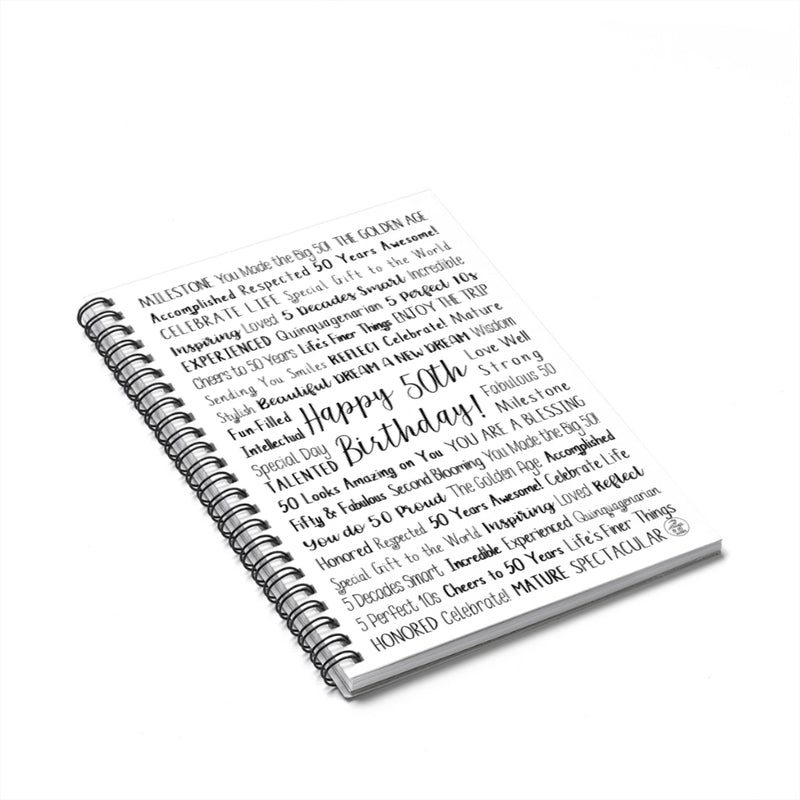 MILESTONE You Made the Big 50! THE GOLDEN AGE
Accomplished Respected 50 Years Awesome!
CELEBRATE LIFE Special Gift to the World
Inspiring Loved 5 Decades Smart Incredible
EXPERIENCED Quinquagenarian 5 Perfect 10s
Cheers to 50 Years Life's Finer Things ENJOY THE TRIP
Sending You Smiles REFLECT Celebrate! Mature
Stylish Beautiful DREAM A NEW DREAM Wisdom
Fun-Filled Happy 50th Love Well
Intellectual Strong
Special Day Birthday! Fabulous 50
TALENTED Milestone
50 Looks Amazing on You YOU ARE A BLESSING
Fifty & Fabulous Second Blooming You Made the Big 50!
You do 50 Proud The Golden Age Accomplished
Honored Respected 50 Years Awesome! Celebrate Life
Special Gift to the World Inspiring Loved Reflect
5 Decades Smart Incredible Experienced Quinquagenarian
5 Perfect 10s Cheers to 50 Years Life's Finer Things
HONORED Celebrate! MATURE SPECTACULAR